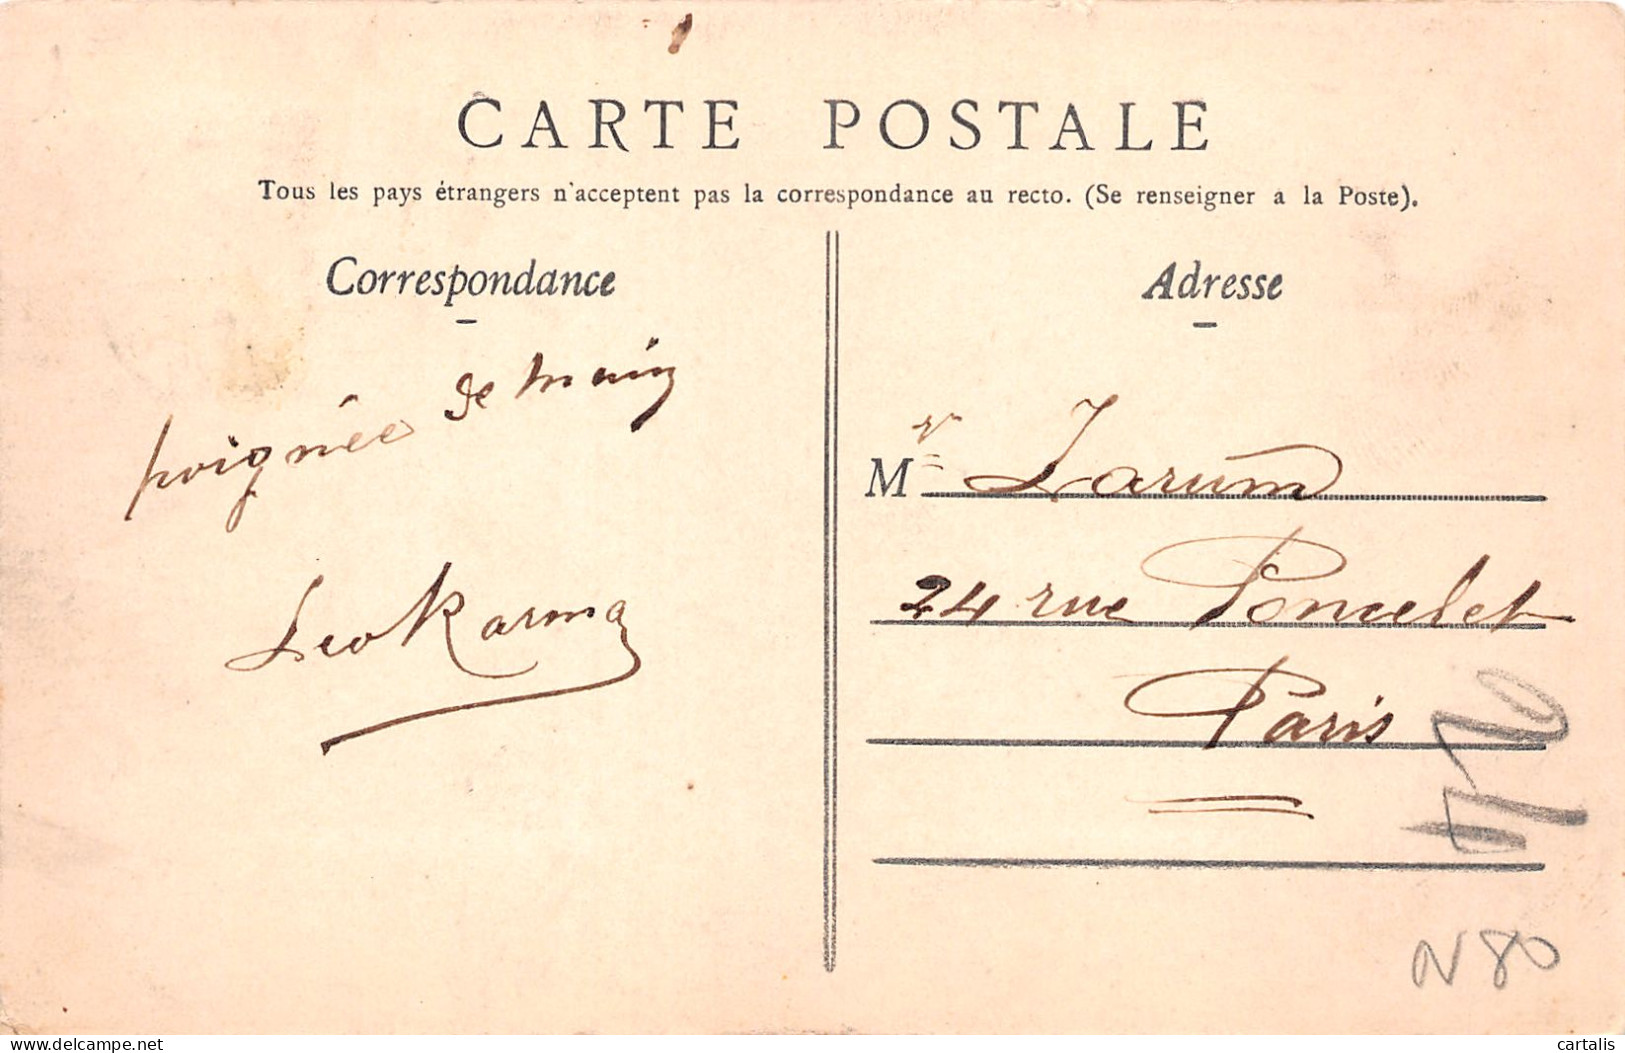 CARTE POSTALE
Tous les pays étrangers n'acceptent pas la correspondance au recto. (Se renseigner a la Poste).
Correspondance
poignée de main
Leo Karma
Adresse
Mr Zarum
24 rue Poncelet
Paris
N80
delcampe.net
cartalis